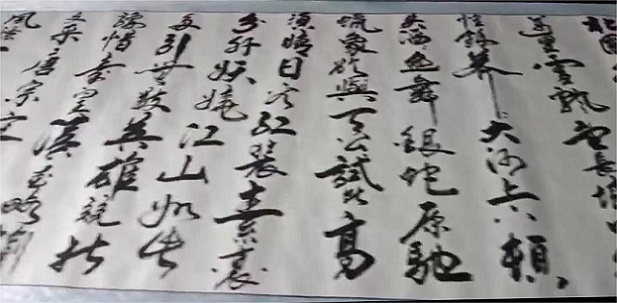 北國
萬里雪飄望長城內
惟餘莽大河上下頓
失滔山舞銀蛇原馳
蠟象欲與天公試比高
須晴日看紅裝素裹
分外妖嬈江山如此
多引無數英雄競折
腰惜秦皇漢武略輸
文采唐宗宋
風騷一